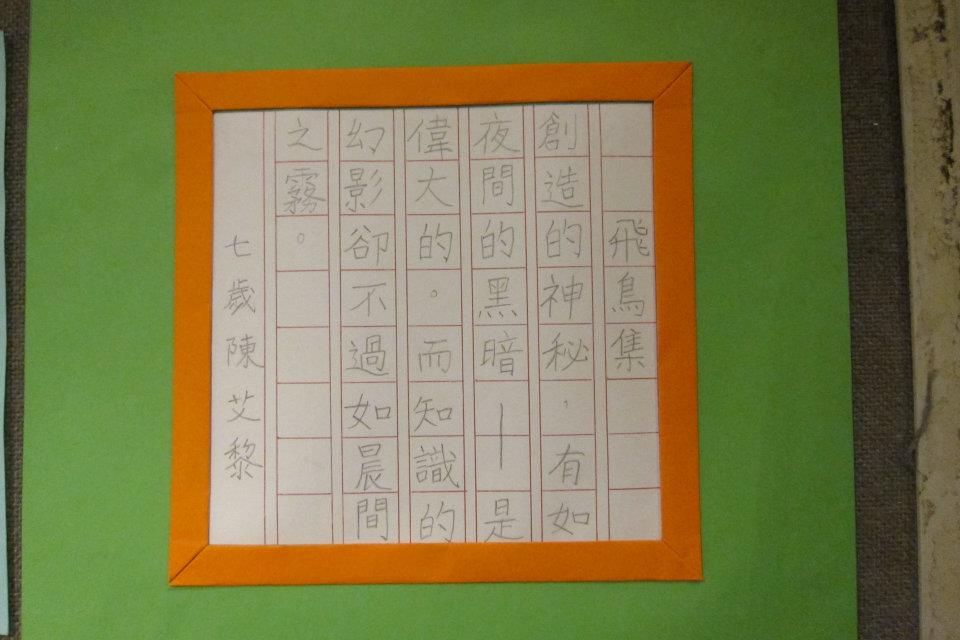 飛鳥集
創造的神秘，有如
夜間的黑暗—是
偉大的。而知識的
幻影卻不過如晨間
之霧。
七歲陳艾黎